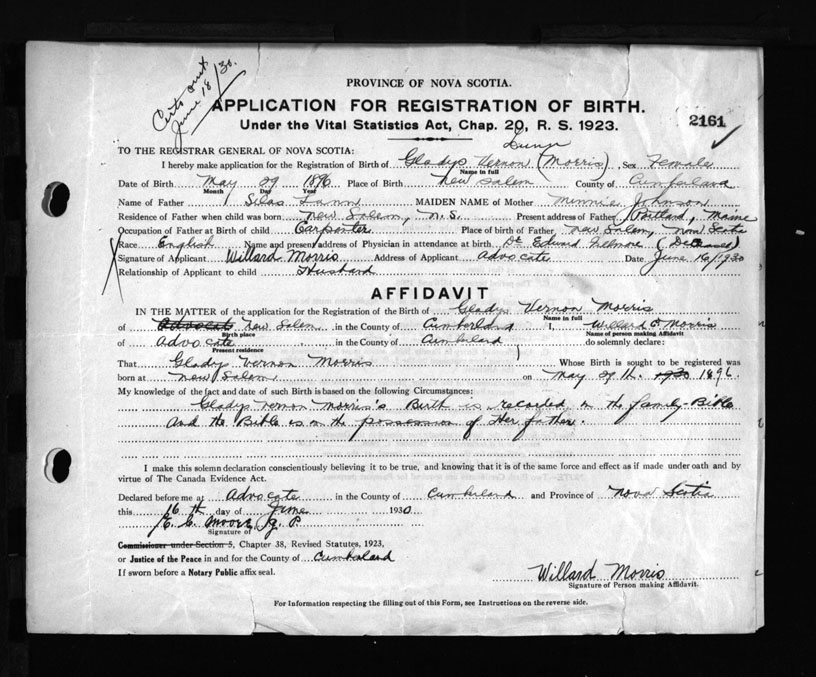 Certs sent
June 18/30.
PROVINCE OF NOVA SCOTIA.
APPLICATION FOR REGISTRATION OF BIRTH.
Under the Vital Statistics Act, Chap. 20, R. S. 1923.
2161
TO THE REGISTRAR GENERAL OF NOVA SCOTIA:
I hereby make application for the Registration of Birth of Gladys Vernon (Morris) Sex Female
Name in full
Date of Birth May 29 1896 Place of Birth New Salem County of Cumberland
Month Day Year
Name of Father Silas MAIDEN NAME of Mother Minnie Johnson
Residence of Father when child was born New Salem, N.S. Present address of Father Portland, Maine
Occupation of Father at Birth of child Carpenter Place of birth of Father New Salem, Nova Scotia
Race English Name and present address of Physician in attendance at birth Dr Edward (Deceased)
Signature of Applicant Willard Morris Address of Applicant Advocate Date June 16/1930
Relationship of Applicant to child Husband
AFFIDAVIT
IN THE MATTER of the application for the Registration of the Birth of Gladys Vernon Morris
Name in full
of Advocate New Salem in the County of Cumberland I, Willard Morris
Birth place Name of person making Affidavit
of Advocate in the County of Cumberland do solemnly declare:
Present residence
That Gladys Vernon Morris Whose Birth is sought to be registered was
born at New Salem on May 29th. 1930 1896.
My knowledge of the fact and date of such Birth is based on the following Circumstances:
Gladys Vernon Morris's Birth is recorded in the family-Bible
and the Bible is in the possession of Her father.
I make this solemn declaration conscientiously believing it to be true, and knowing that it is of the same force and effect as if made under oath and by
virtue of The Canada Evidence Act.
Declared before me at Advocate in the County of Cumberland and Province of Nova Scotia
this 16th day of June 1930
E. C. Moore J P
Signature of
Commissioner under Section 5, Chapter 38, Revised Statutes, 1923,
or Justice of the Peace in and for the County of Cumberland
If sworn before a Notary Public affix seal.
Willard Morris
Signature of Person making Affidavit.
For Information respecting the filling out of this Form, see Instructions on the reverse side.